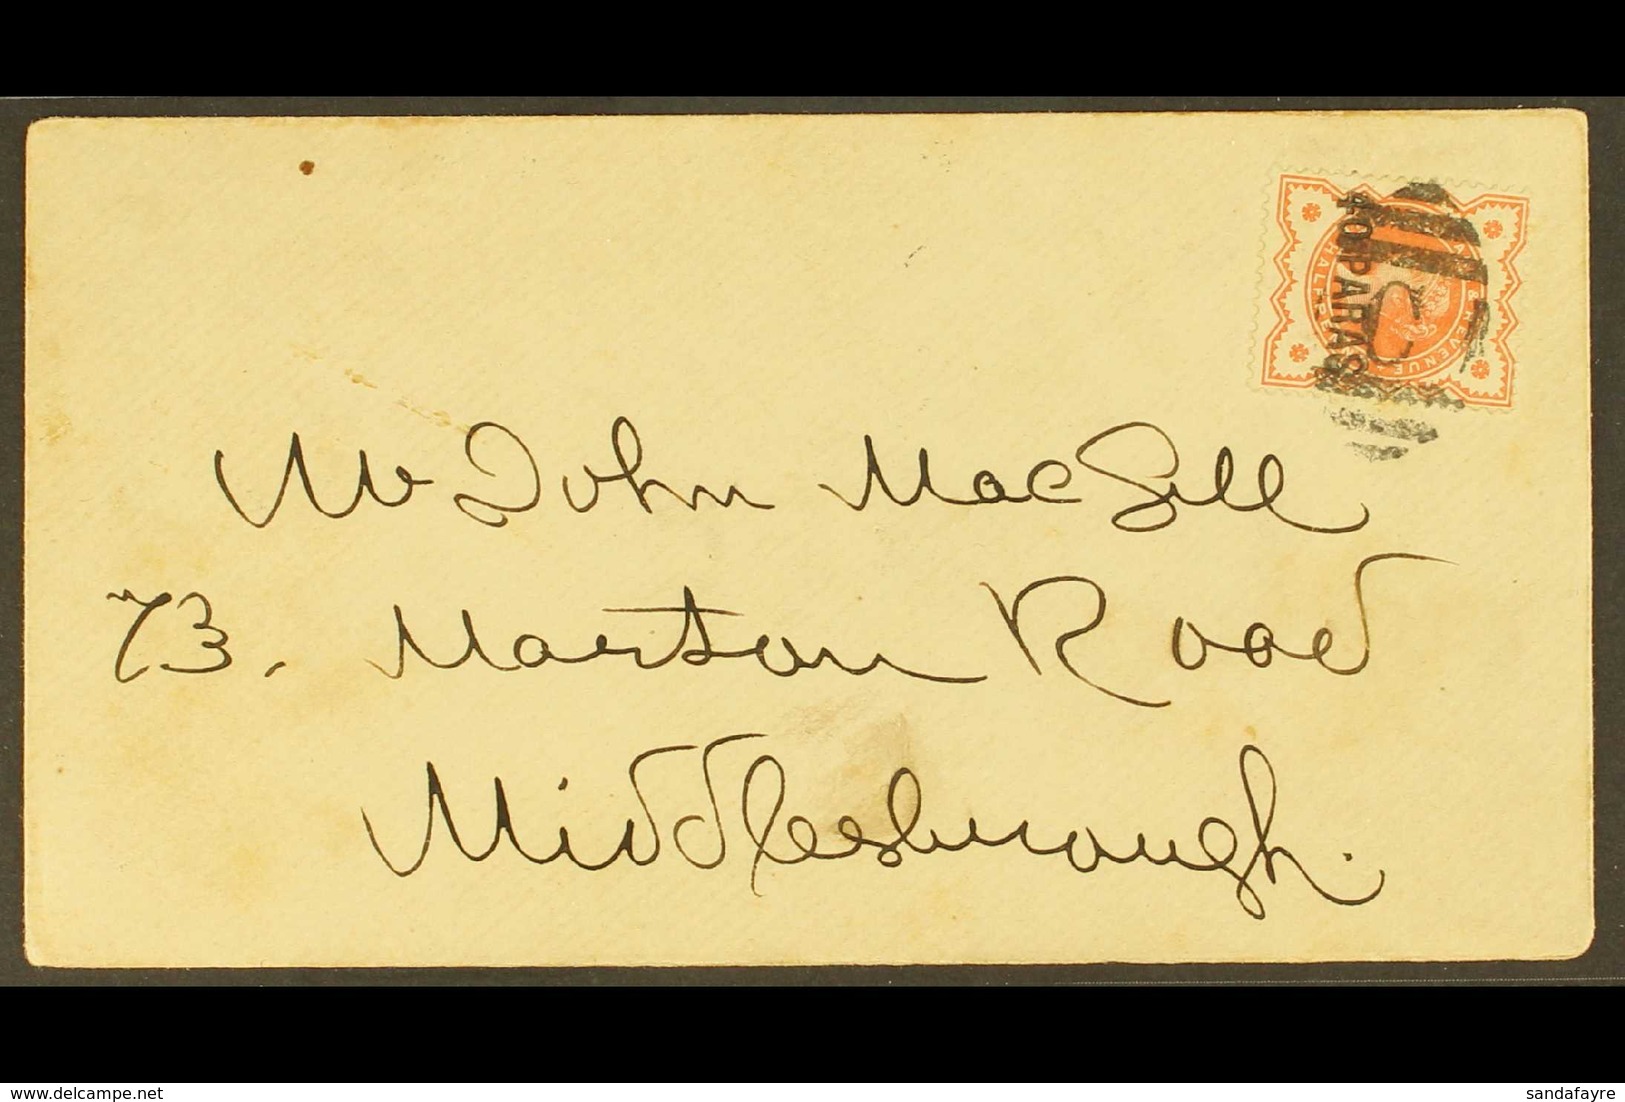 40 PARAS
C
HALFPE
& REVENUE
Mr John MacGill
73. Marton Road
Middlesbrough.
www.delcampe.net
sandafayre